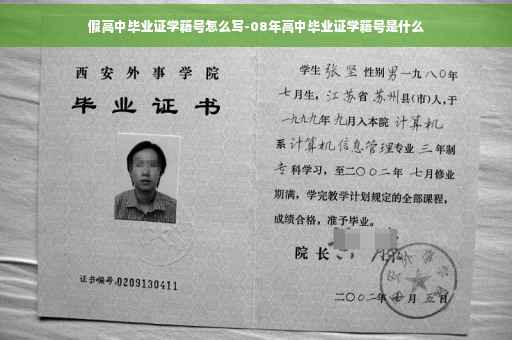 假高中毕业证学藉号怎么写-08年高中毕业证学藉号是什么
西安外事学院
毕业证书
证书编号:0209130411
学生 张坚 性别 男 一九八〇年
七月生，江苏省 苏州县(市)人,于
一九九九年 九月入本院 计算机
系 计算机信息管理专业 三 年制
专科学习，至二〇〇二年 七月修业
期满，学完教学计划规定的全部课程，
成绩合格，准予毕业。
院长
二〇〇二年 七 月 五 日